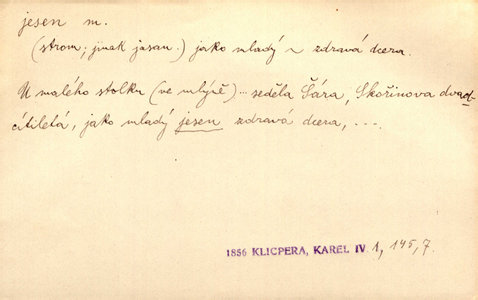 jesen m.
(strom; jinak jasan.) jako mladý ~ zdravá dcera.
U malého stolku (ve mlýně) ... seděla Šára, Skořinova dvad-
cítiletá, jako mladý jesen zdravá dcera, ...
1856 KLICPERA, KAREL IV. 1, 145, 7.